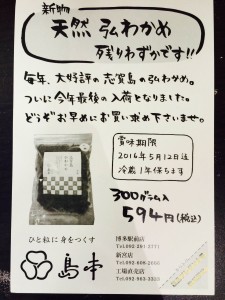 新物
天然 弘わかめ
残りわずかです!!
毎年、大好評の志賀島の弘わかめ。
ついに今年最後の入荷となりました。
どうぞお早めにお買い求め下さいませ。
賞味期限
2016年5月12日迄
冷蔵1年保ちます
300グラム入
594円(税込)
ひと粒に身をつくす
島本
博多駅前店
新宮店
工場直売店